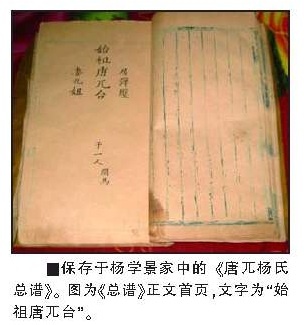 始祖唐兀台
子一人 閭馬
■保存于杨学景家中的《唐兀杨氏
总谱》。图为《总谱》正文首页，文字为“始
祖唐兀台”。